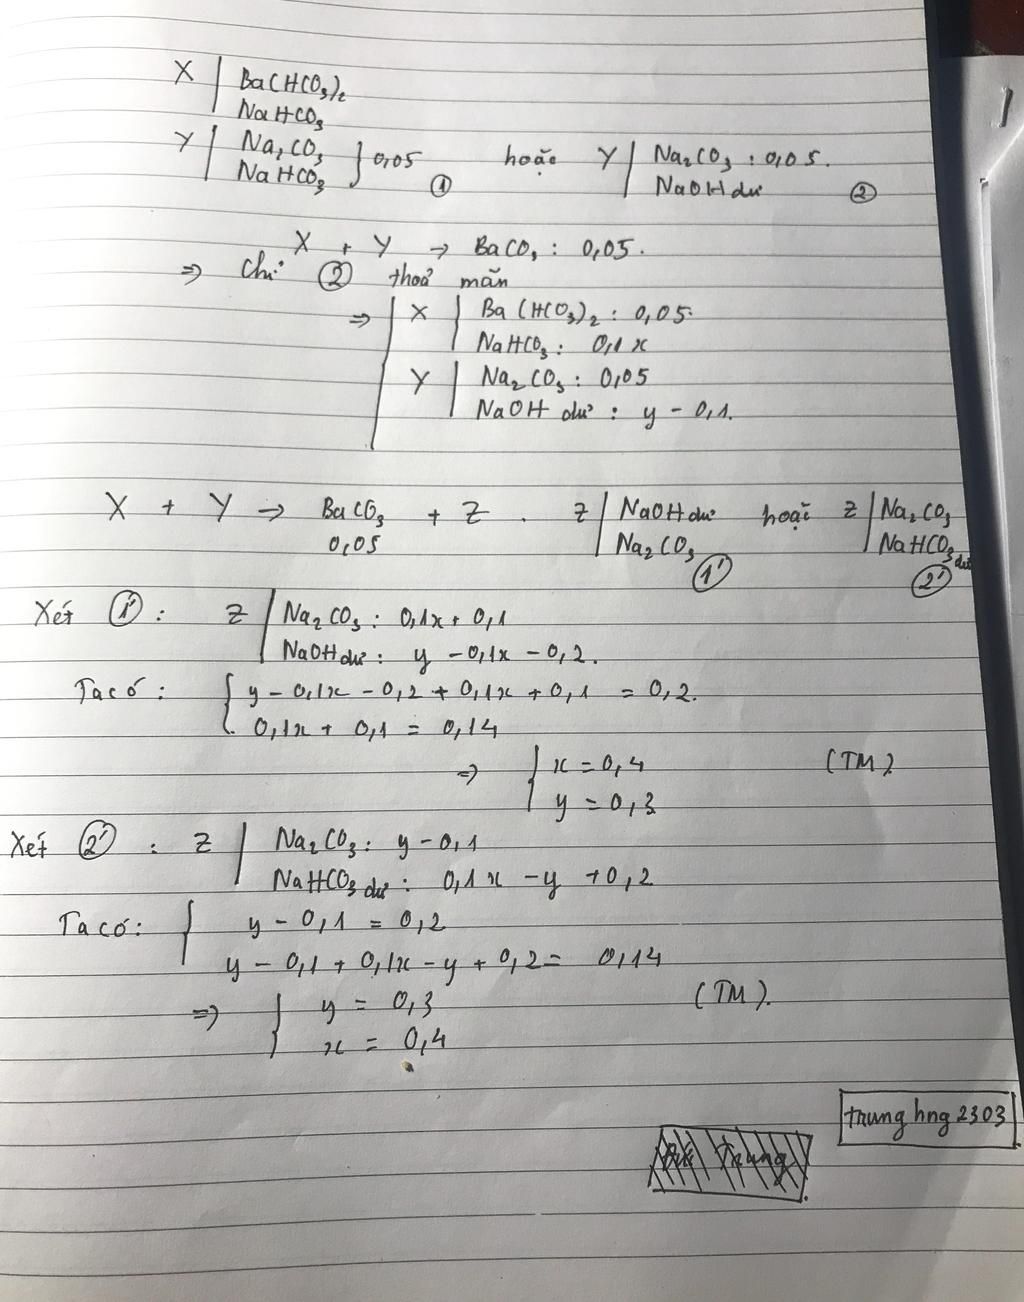 X | Ba(HCO₃)₂
NaHCO₃
Y | Na₂CO₃
NaHCO₃ } 0,05 ① hoặc Y | Na₂CO₃ : 0,05.
NaOH dư ②
X + Y → BaCO₃ : 0,05.
⇒ Chỉ ② thoả mãn
⇒ X | Ba(HCO₃)₂ : 0,05.
NaHCO₃ : 0,1x
Y | Na₂CO₃ : 0,05
NaOH dư : y - 0,1.
X + Y → BaCO₃ + Z . Z | NaOH dư hoặc Z | Na₂CO₃
0,05 Na₂CO₃ ①' NaHCO₃ dư ②'
Xét ①' : Z | Na₂CO₃ : 0,1x + 0,1
NaOH dư : y - 0,1x - 0,2.
Ta có : { y - 0,1x - 0,2 + 0,1x + 0,1 = 0,2.
0,1x + 0,1 = 0,14
⇒ { x = 0,4 (TM)
y = 0,3
Xét ②' : Z | Na₂CO₃ : y - 0,1
NaHCO₃ dư : 0,1x - y + 0,2
Ta có : { y - 0,1 = 0,2
y - 0,1 + 0,1x - y + 0,2 = 0,14
⇒ { y = 0,3 (TM).
x = 0,4
trunghng2303